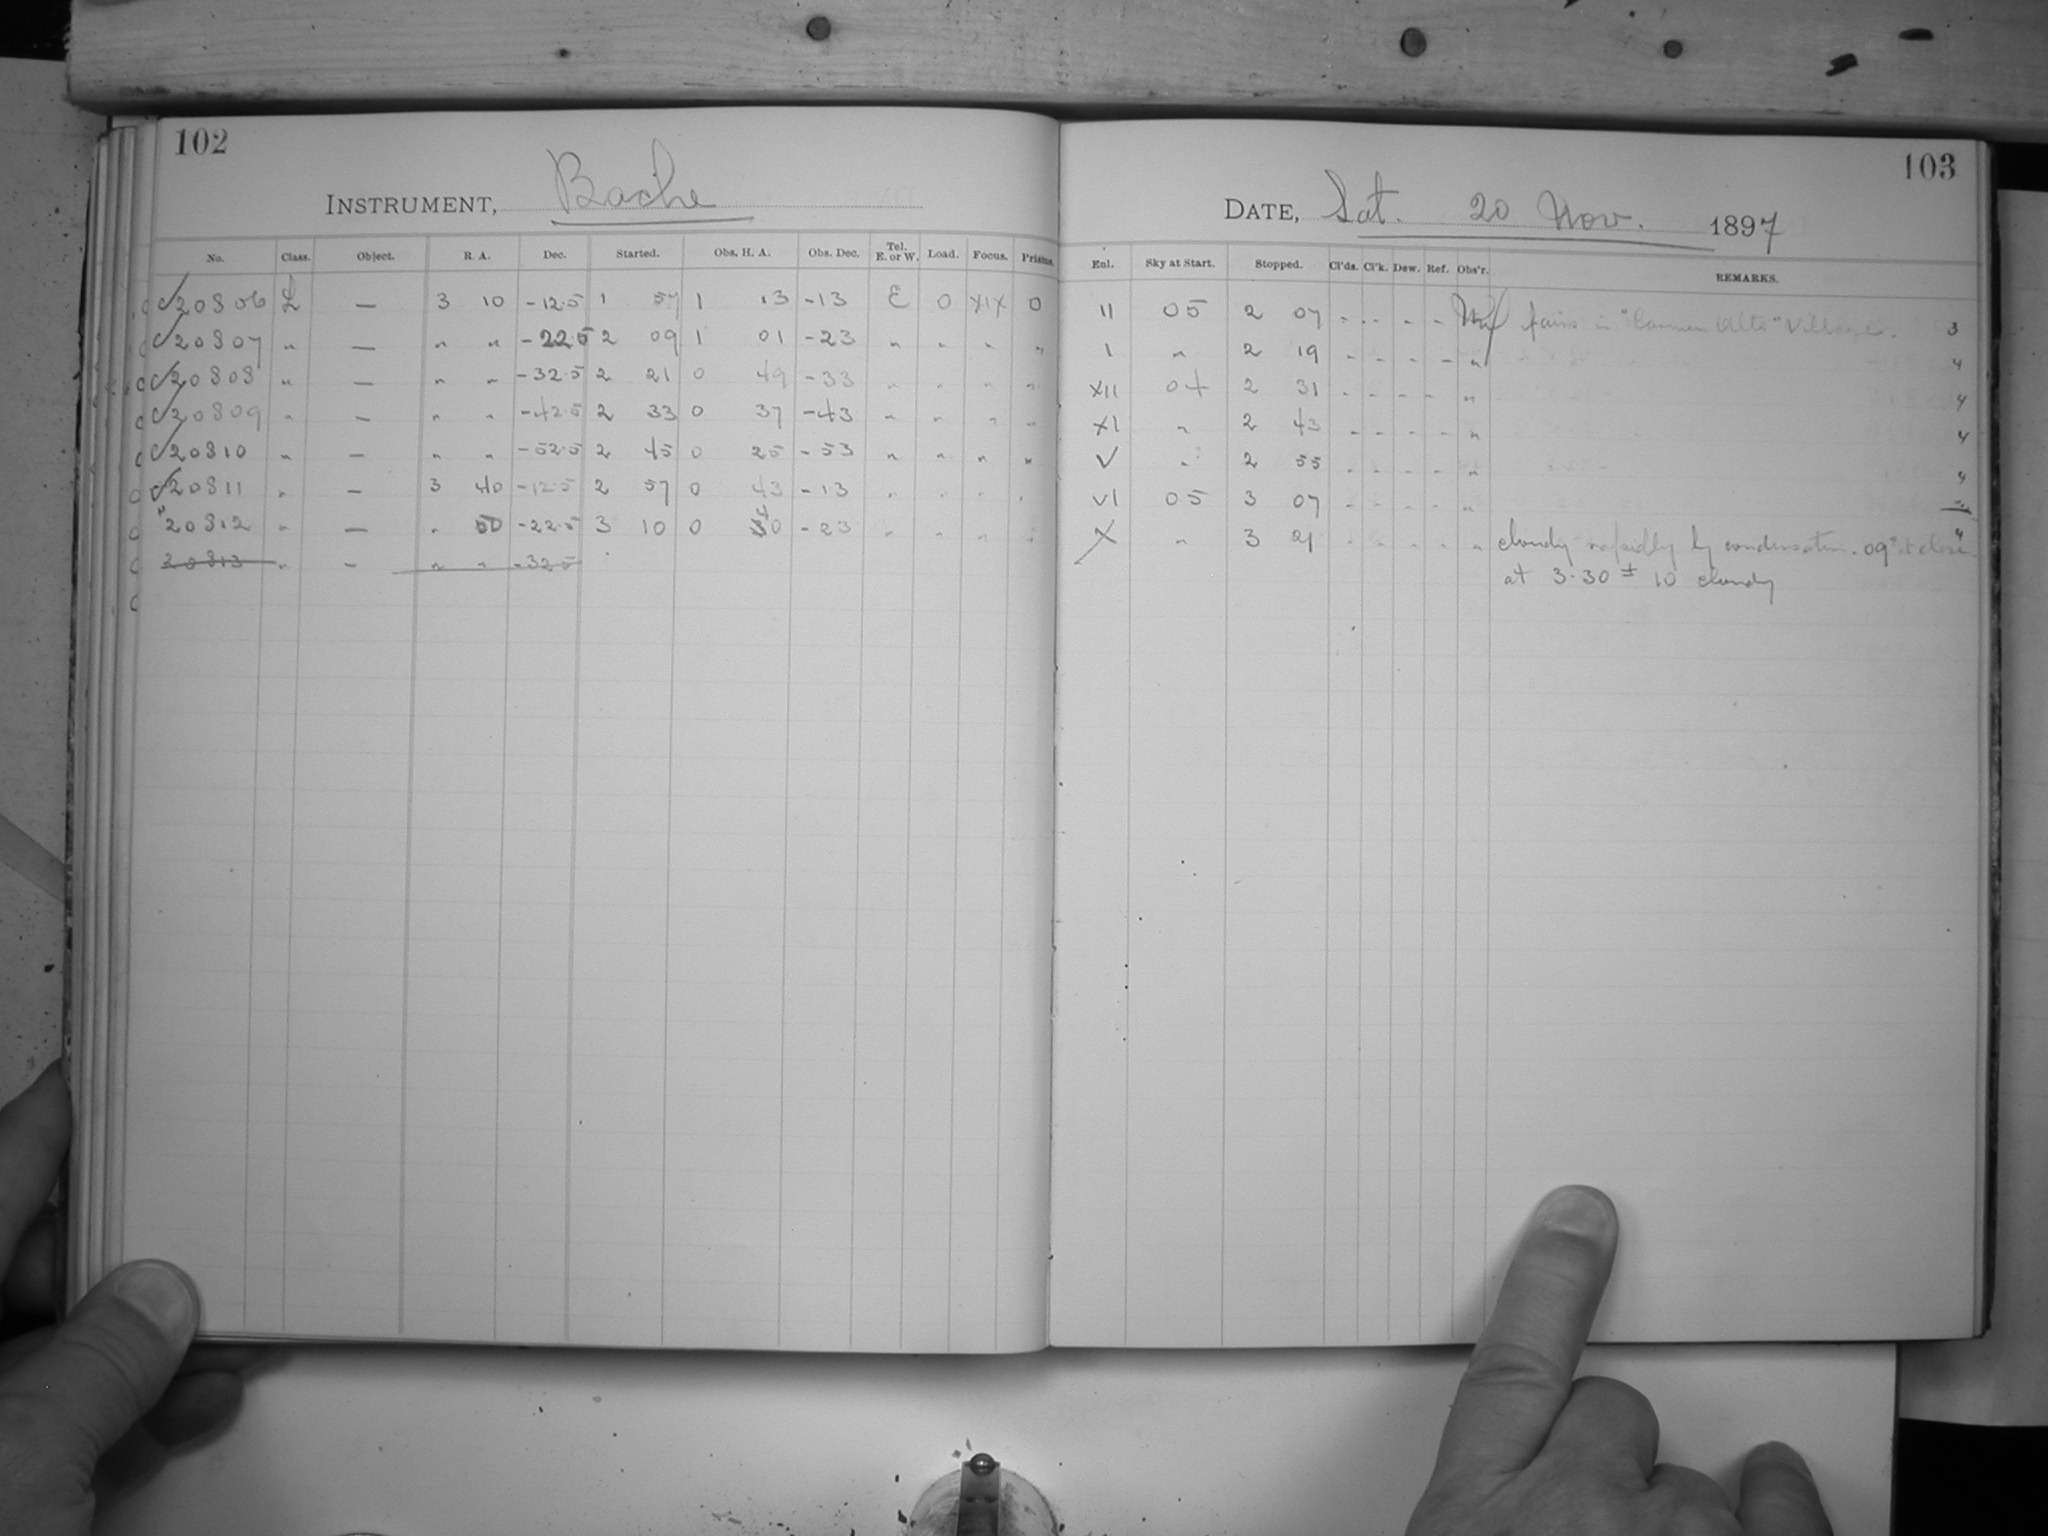 102
INSTRUMENT, Bache
No. Class. Object. R. A. Dec. Started. Obs. H. A. Obs. Dec. Tel. E. or W. Load. Focus. Prisms.
20806 L — 3 10 -12.5 1 57 1 13 -13 E 0 XIX 0
20807 " — " " -22.5 2 09 1 01 -23 " " " "
20808 " — " " -32.5 2 21 0 49 -33 " " " "
20809 " — " " -42.5 2 33 0 37 -43 " " " "
20810 " — " " -52.5 2 45 0 25 -53 " " " "
20811 " — 3 40 -12.5 2 57 0 43 -13 " " " "
20812 " — " 50 -22.5 3 10 0 40 -23 " " " "
20813 " — " " -32.5
103
DATE, Sat. 20 Nov. 1897
Enl. Sky at Start. Stopped. Cl'ds. Cl'k. Dew. Ref. Obs'r. REMARKS.
II 05 2 07 - - - - fairs in "Carmen Alto" Village. 3
I " 2 19 - - - - " 4
XII 04 2 31 - - - - " 4
XI " 2 43 - - - - " 4
V " 2 55 - - - - " 4
VI 05 3 07 - - - - "
X " 3 21 - - - - " cloudy rapidly by condensation. 09 at close. 4
at 3.30 ± 10 cloudy